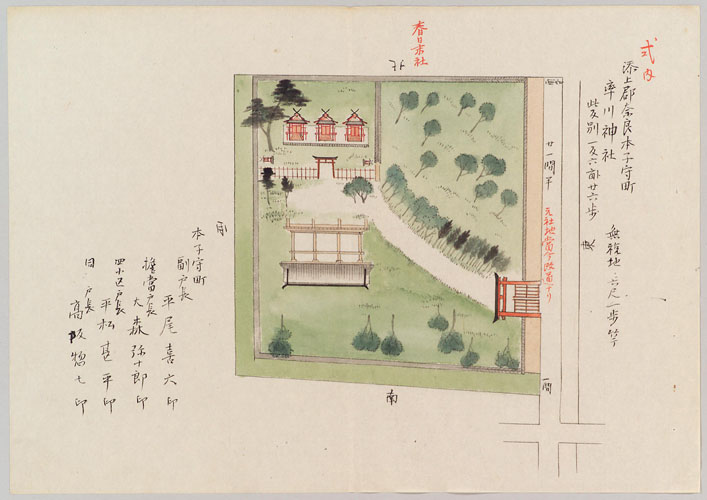 式内
春日末社
添上郡奈良本子守町
率川神社
此反別一反六畝廿六歩
無税地 六尺一歩竿
北
東
南
西
廿一間半
元社地当今改道ナリ
一間
本子守町
副戸長 平尾喜六 印
担当戸長 大森弥十郎 印
四小区戸長 平松甚平 印
同 戸長 高坂惣七 印